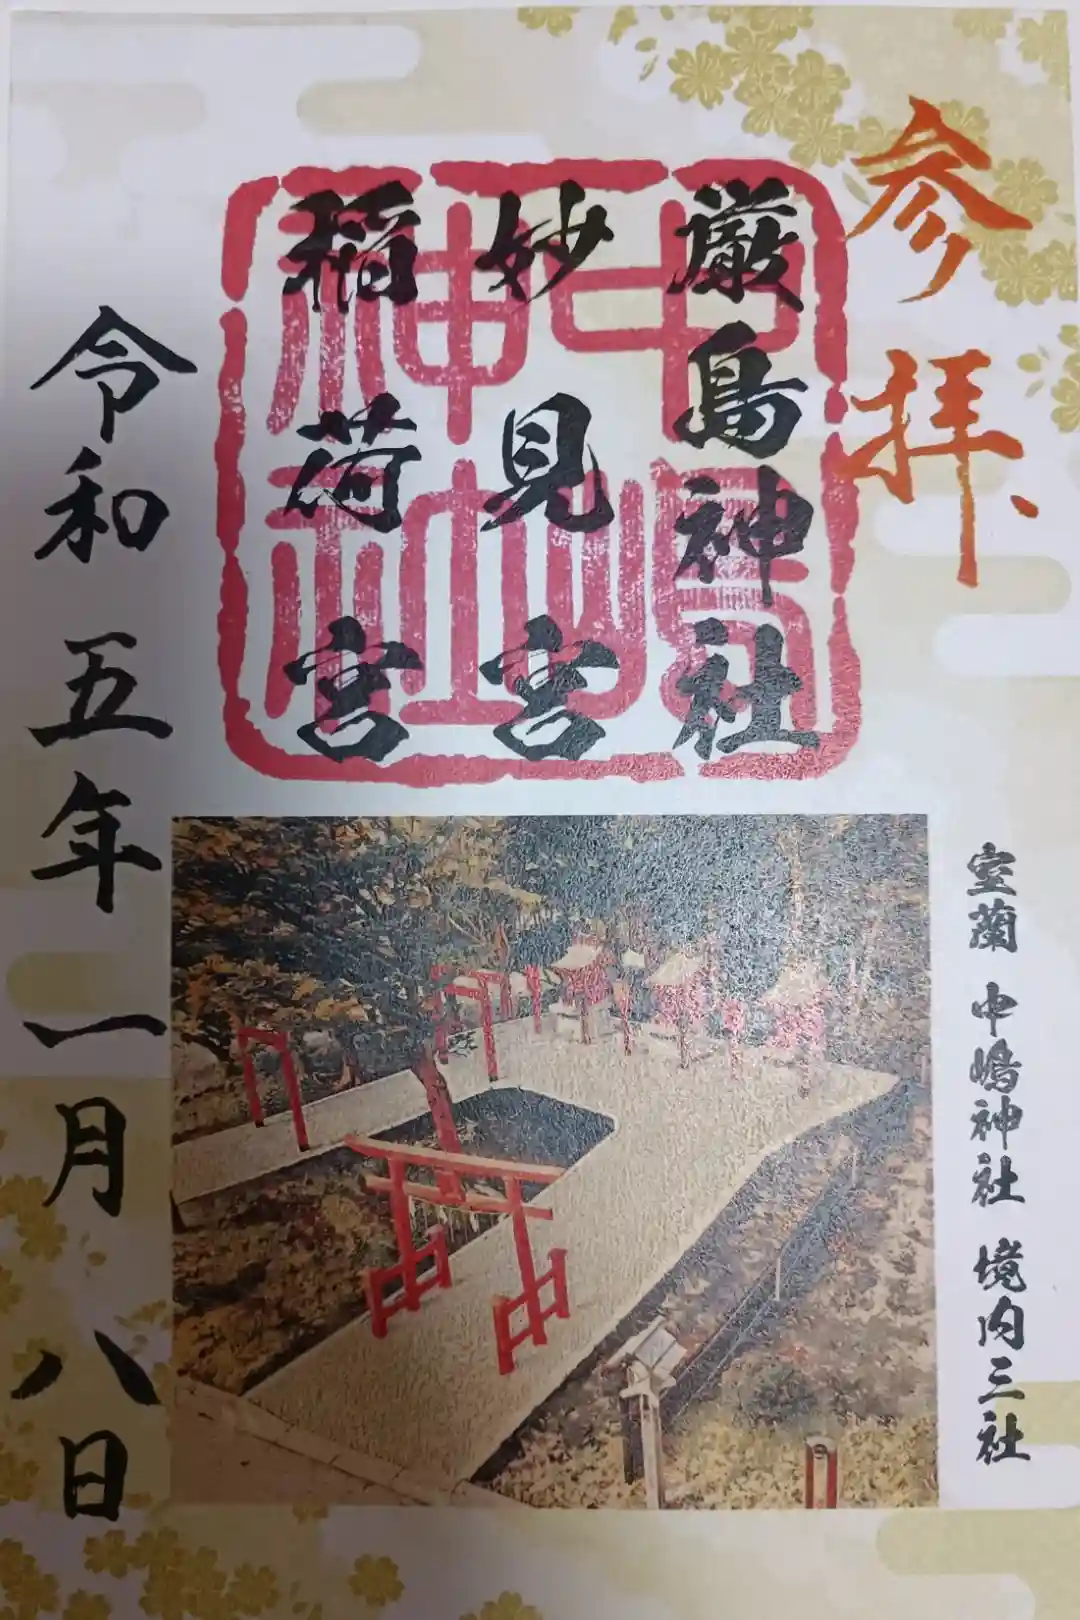 参拝
厳島神社
妙見宮
稲荷宮
中嶋
神社
令和五年一月八日
室蘭 中嶋神社 境内三社